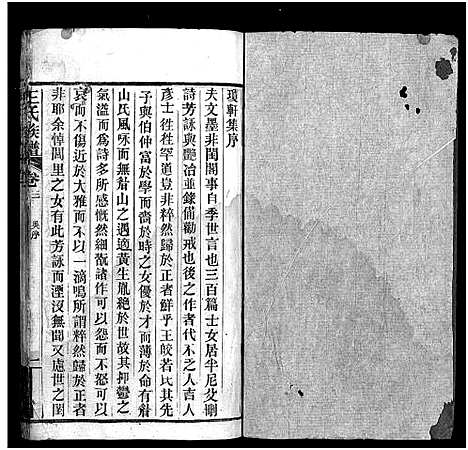 瓊軒集序
夫文墨非閨閣事自季世言也三百篇士女居半尼父刪
詩芳詠與豔冶並錄備勸戒也後世作者代不乏人吉人
彥士往往罕道豈非粹然歸於正者鮮乎王皎若氏其先
子與伯仲富於學而嗇於時之女優於才而薄於命有眷
山氏風咏而無眷山之遇適黃生胤絕於世故其抑鬱之
氣溢而為詩多所感慨然細翫諸作可以怨而不怒可以
哀而不傷近於大雅而不以一滴鳴所謂粹然歸於正者
非耶余悼閭里之女有此芳詠而湮沒無聞又慮世之閨
王氏族譜 卷二 吳序